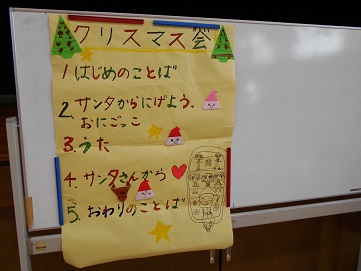 クリスマス会
1.はじめのことば
2.サンタからにげよう、
おにごっこ
3.うた
4.サンタさんから
5.おわりのことば